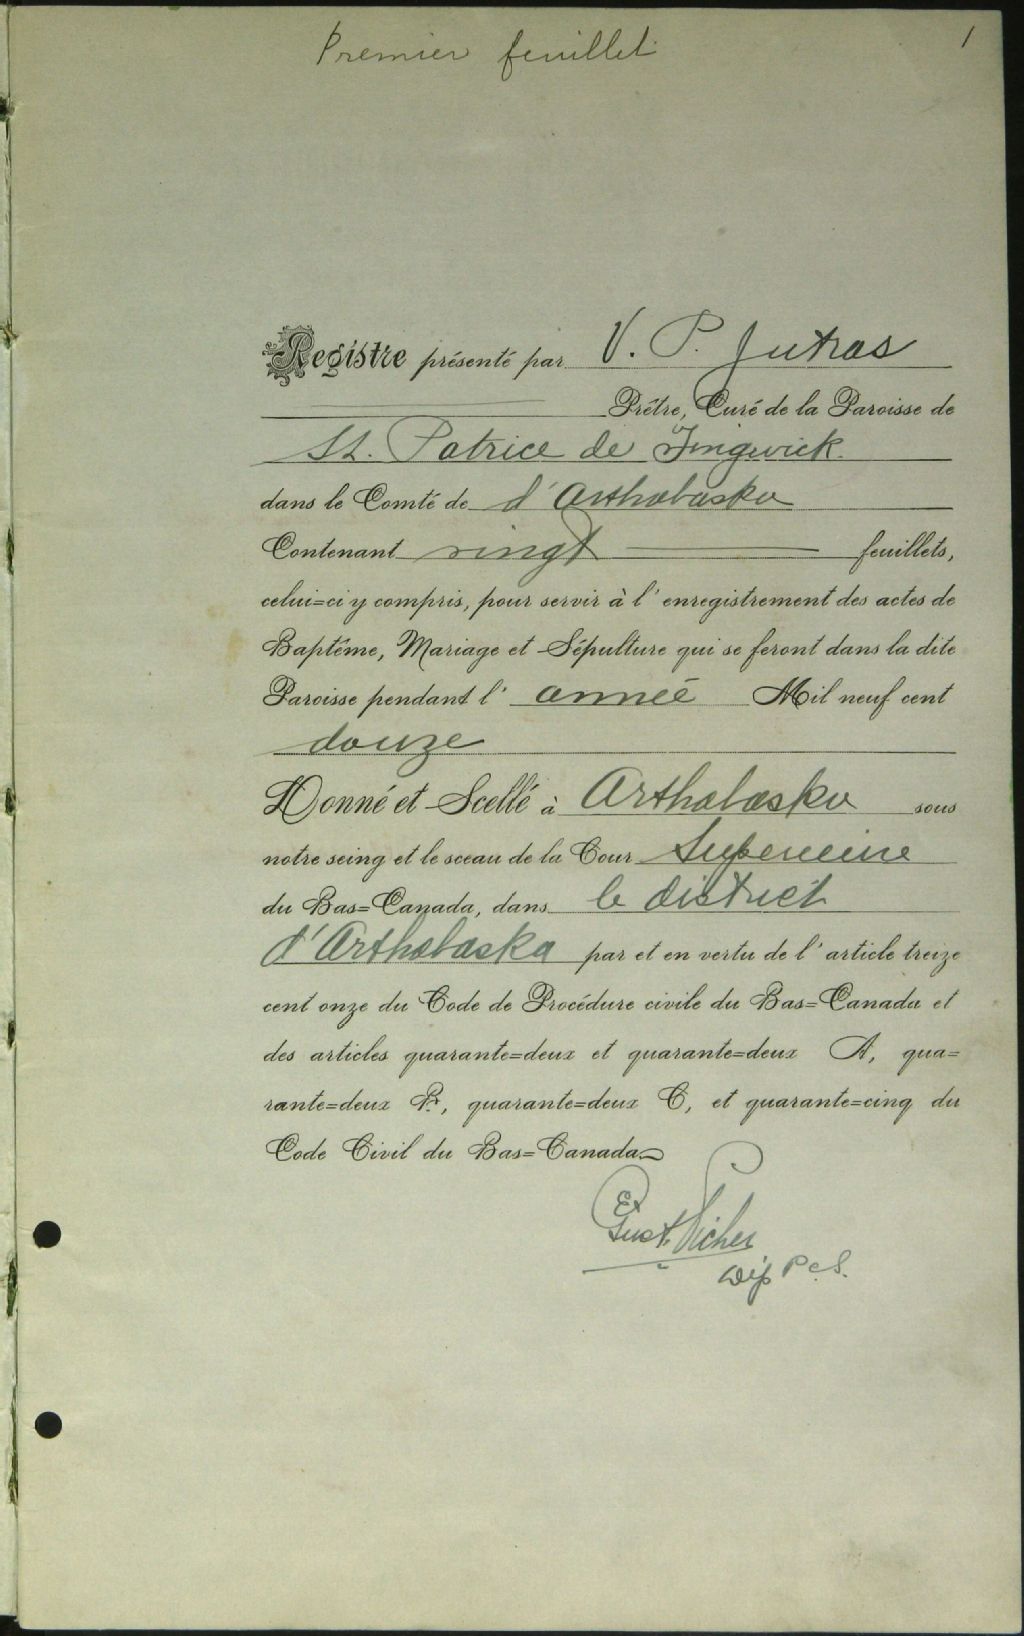 Premier feuillet
1
Registre présenté par V. P. Jutras
Prêtre, Curé de la Paroisse de
St. Patrice de Tingwick
dans le Comté de d'Arthabaska
Contenant vingt feuillets,
celui=ci y compris, pour servir à l'enregistrement des actes de
Baptême, Mariage et Sépulture qui se feront dans la dite
Paroisse pendant l'année Mil neuf cent
douze
Donné et Scellé à Arthabaska sous
notre seing et le sceau de la Cour Supérieure
du Bas=Canada, dans le district
d'Arthabaska par et en vertu de l'article treize
cent onze du Code de Procédure civile du Bas=Canada et
des articles quarante=deux et quarante=deux A, qua=
rante=deux B, quarante=deux C, et quarante=cinq du
Code Civil du Bas=Canada
Picher
Dép P.C.S.